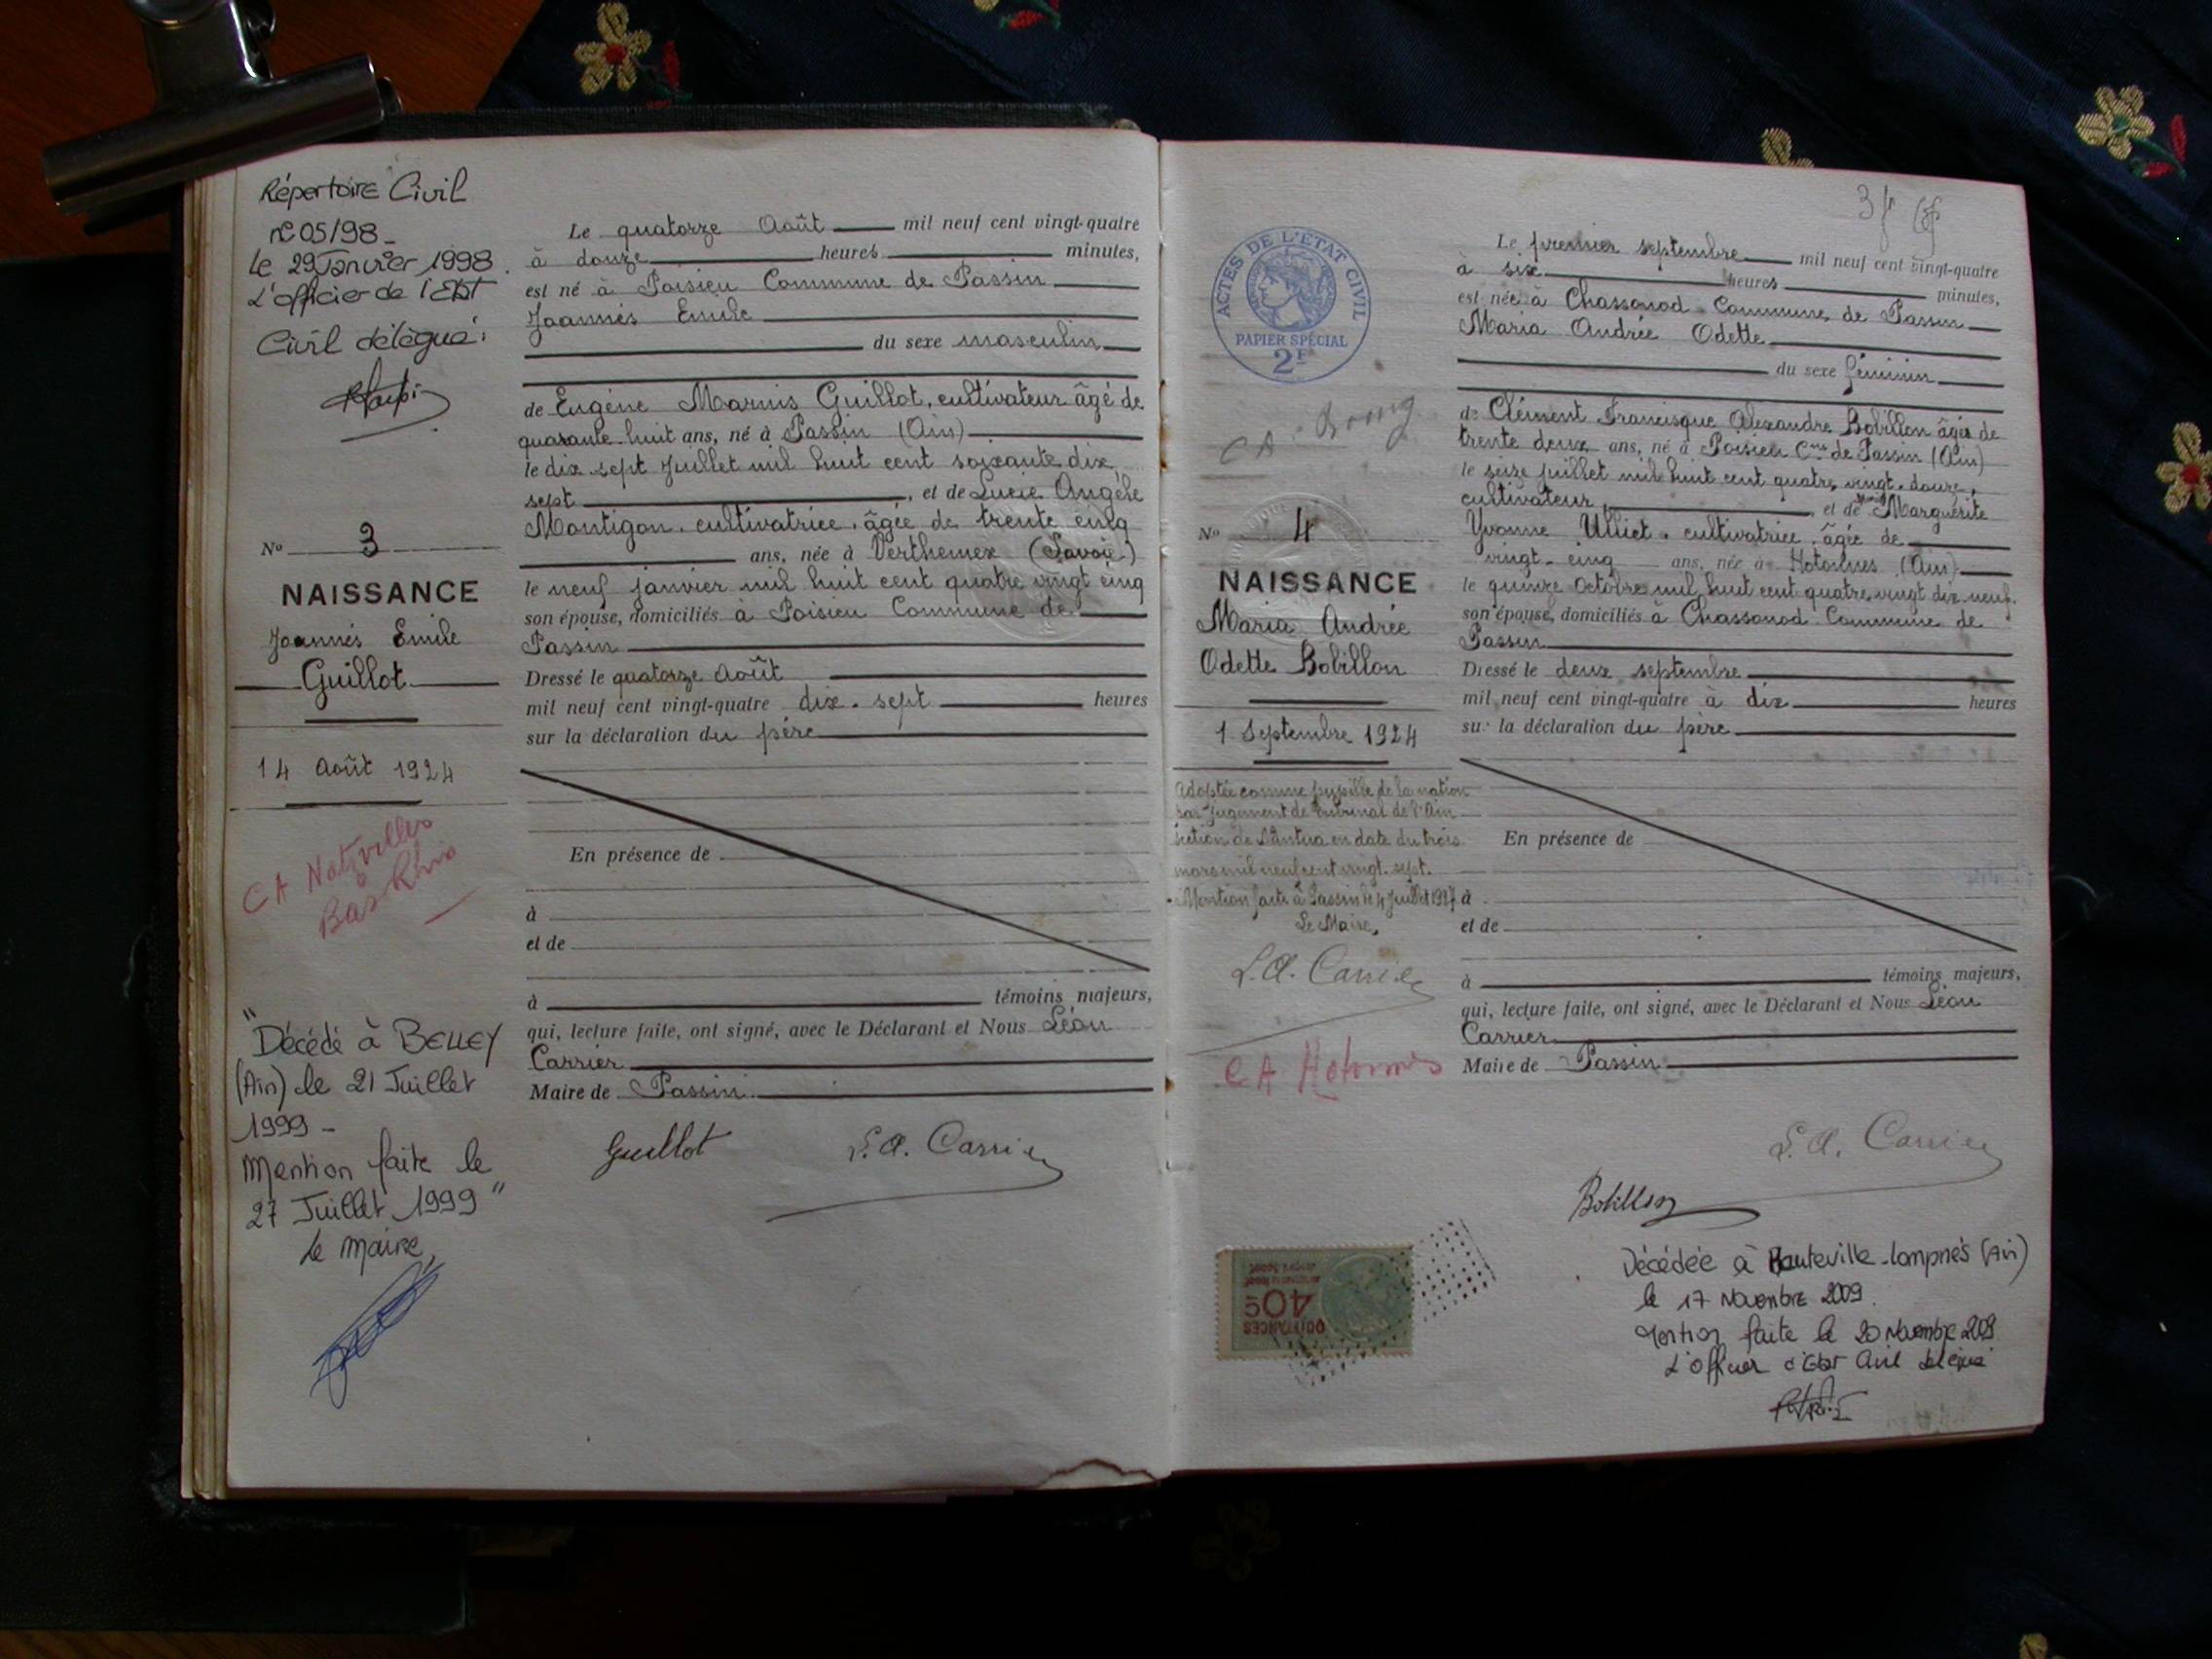 Répertoire Civil
n° 05/98 -
Le 29 Janvier 1998.
L'officier de l'Etat
Civil délégué :
N° 3
NAISSANCE
Joannès Emile
Guillot
14 Août 1924
CA
Bas Rhin
"Décédé à BELLEY
(Ain) le 21 Juillet
1999 -
Mention faite le
27 Juillet 1999"
Le Maire,
Le quatorze Août mil neuf cent vingt-quatre
à douze heures minutes,
est né à Poisieu Commune de Passin
Joannès Emile
du sexe masculin
de Eugène Marius Guillot, cultivateur âgé de
quarante-huit ans, né à Passin (Ain)
le dix sept Juillet mil huit cent soixante dix
sept , et de Lucie Angèle
Montigon, cultivatrice, âgée de trente cinq
ans, née à Verthemex (Savoie)
le neuf janvier mil huit cent quatre vingt cinq
son épouse, domiciliés à Poisieu Commune de
Passin
Dressé le quatorze Août
mil neuf cent vingt-quatre dix-sept heures
sur la déclaration du père
En présence de
à
et de
à témoins majeurs,
qui, lecture faite, ont signé, avec le Déclarant et Nous Léon
Carrier
Maire de Passin
Guillot L. A. Carrier
3 fr
ACTES DE L'ÉTAT CIVIL
PAPIER SPÉCIAL
2F
CA
N° 4
NAISSANCE
Maria Andrée
Odette Bobillon
1 Septembre 1924
Adoptée comme pupille de la nation
par jugement de tribunal de l'Ain
section de Nantua en date du trois
mars mil neuf cent vingt-sept.
Mention faite à Passin le 4 Juillet 1927
Le Maire,
L. A. Carrier
CA Hotonnes
Le premier septembre mil neuf cent vingt-quatre
à six heures minutes,
est née à Chassonod Commune de Passin
Maria Andrée Odette
du sexe féminin
de Clément Francisque Alexandre Bobillon âgé de
trente deux ans, né à Poisieu Cne de Passin (Ain)
le seize juillet mil huit cent quatre vingt-douze,
cultivateur, et de Marguerite
Yvonne Ulliet, cultivatrice, âgée de
vingt-cinq ans, née à Hotonnes (Ain)
le quinze octobre mil huit cent quatre vingt dix neuf.
son épouse, domiciliés à Chassonod Commune de
Passin
Dressé le deux septembre
mil neuf cent vingt-quatre à dix heures
sur la déclaration du père
En présence de
à
et de
à témoins majeurs,
qui, lecture faite, ont signé, avec le Déclarant et Nous Léon
Carrier
Maire de Passin
L. A. Carrier
Bobillon
QUITTANCES
40c
Décédée à Hauteville-Lompnès (Ain)
le 17 Novembre 2009.
Mention faite le 20 Novembre 2009
L'officier d'Etat Civil délégué